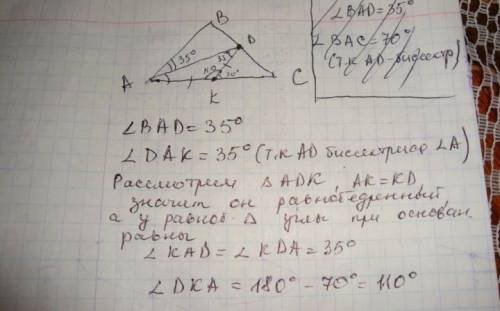 B
35°
D
35°
110
70°
A
K
C
∠BAD = 35°
∠BAC = 70°
(т.к AD-биссектр)
∠BAD = 35°
∠DAK = 35° (т.к AD биссектриса ∠A)
Рассмотрем △ADK, AK=KD
значит он равнобедренный
а у равноб. △ углы при основан.
равны
∠KAD = ∠KDA = 35°
∠DKA = 180° - 70° = 110°